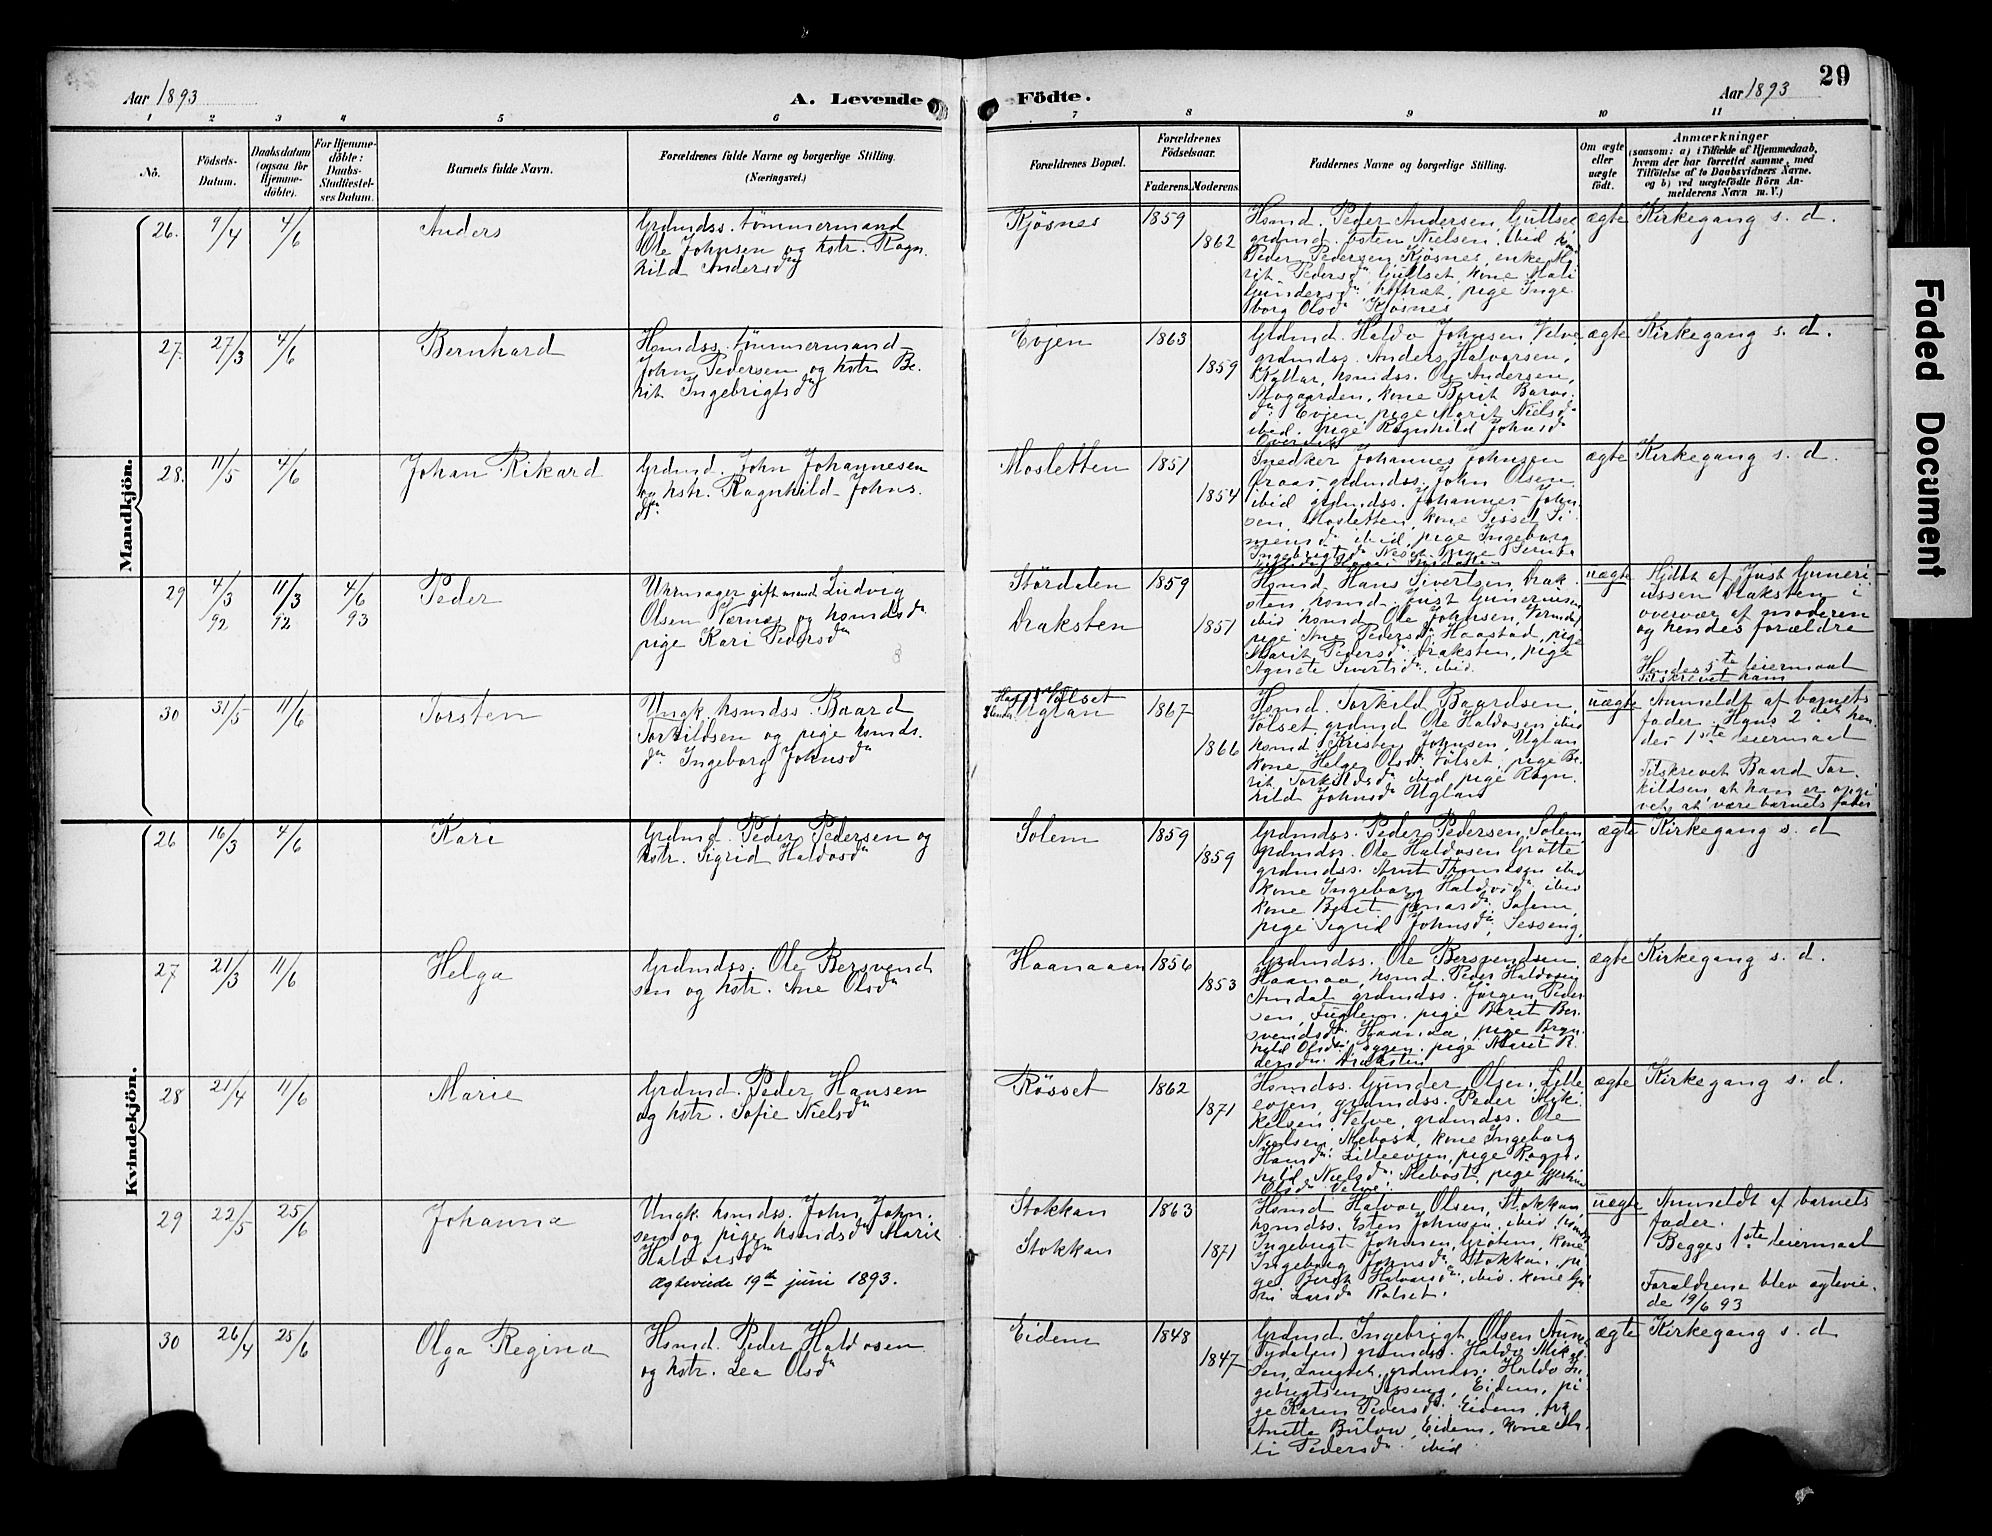 Aar 1893
A. Levende
Födte.
Aar 1893
29
1 2 3 4 5 6 7 8 9 10 11
No.
Födsels-Datum.
Daabsdatum (ogsaa for Hjemme-döbte).
For Hjemme-döbte: Daabs-Stadfæstel-ses Datum.
Barnets fulde Navn.
Forældrenes fulde Navne og borgerlige Stilling. (Næringsvei.)
Forældrenes Bopæl.
Forældrenes Födselsaar.
Faderens.
Moderens.
Faddernes Navne og borgerlige Stilling.
Om ægte eller uægte födt.
Anmærkninger
(saasom: a) i Tilfælde af Hjemmedaab, hvem der har forrettet samme, med Tilföielse af to Daabsvidners Navne, og b) ved uægtefödte Börn Anmelderens Navn m. V.)
Mandkjön.
26. 9/4 4/6 Anders
Grdmdss. tömmermand
Ole Johnsen og hstr. Ragn-
hild Andersdtr
Kjösnes 1859 1862
Hsmd. Peder Andersen, Gullset
grdmd. Esten Nielsen, ibid
Peder Pedersen Kjösnes, enke Ma-
rit Pedersdtr Gullset, kone Mali
Gundersdtr, pige Inge
borg Olsdtr Kjösnes
ægte Kirkegang s. d.
27. 27/3 4/6 Bernhard
Hsmdss. tömmermand
John Pedersen og hstr Be-
rit Ingebrigtsdtr
Evjen 1863 1859
Grdmd. Haldo Johnsen Velve
grdmdss. Anders Halvorsen,
hsmdss. Ole Andersen,
Mogaarden, kone Berit
Evjen pige Marit Nielsdtr
ibid. pige Ragnhild Johnsdtr
ægte Kirkegang s. d.
28. 11/5 4/6 Johan Rikard
Grdmd. John Johannesen
og hstr. Ragnhild Johns-
dtr.
Mosletten 1851 1854
Snedker Johannes Johnsen
grdmdss. John Olsen
ibid grdmdss. Johannes John-
sen, Mosletten, kone Sissel Si-
monsdtr ibid, pige Ingeborg
Ingebrigtsdtr
ægte Kirkegang s. d.
29 4/3 92 11/3 92 4/6 93 Peder
Uhrmager gift mand Ludvig
Olsen Værnes og hsmdsdtr
pige Kari Pedersdtr
Stördalen
Draksten 1859 1851
Hsmd. Hans Sivertsen Drak-
sten, hsmd. Just Guneriussen
ibid hsmd. Ole Johnsen,
pige Ane Pedersdtr Haastad, pige
Marit Pedersdtr Draksten, pige
Agnete Sivertsdtr ibid.
uægte Hjdbt af Just Guneri-
ussen Draksten i
overvær af moderen
og hendes forældre
Hendes 5te leiermaal
Tilskrevet ham
30 31/5 11/6 Torsten
Ungk. hsmdss. Baard
Torkildsen og pige hsmds-
dtr Ingeborg Johnsdtr
Völset
Hendes Uglan 1867 1866
Hsmd. Torkild Baardsen,
Völset, grdmd Ole Haldosen ibid
hsmd. Kristen Johnsen, Uglan
kone Helge Olsdtr Völset, pige Be-
rit Torkildsdtr ibid pige Ragn-
hild Johnsdtr Uglan
uægte Anmeldt af barnets
fader. Hans 2det hen-
des 1ste leiermaal
Tilskrevet Baard Tor-
kildsen at han er opgi-
vet at være barnets fader
Kvindekjön.
26 16/3 4/6 Kari
Grdmd. Peder Pedersen og
hstr. Sigrid Haldosdtr
Solem 1859 1859
Grdmdss. Peder Pedersen, Solem,
grdmdss. Ole Haldosen Grötte
grdmdss. Arnt Thomdsen ibid
kone Ingeborg Haldosdtr ibid
kone Berit Jonasdtr. Solem,
pige Sigrid Johnsdtr, Sesseng,
ægte Kirkegang s. d
27 21/3 11/6 Helga
Grdmdss. Ole Bersvend
sen og hstr. Ane Olsdtr
Haanaaen 1856 1853
Grdmdss. Ole Bersvendsen
Haanaa, hsmd. Peder Haldosen
Amdal grdmdss. Jörgen Peder-
sen, Fuglem. pige Berit Ber-
svendsdtr. Haanaa, pige Ragn-
hild Olsdtr. Eggen, pige Maret
Draksten
ægte Kirkegang s. d.
28 21/4 11/6 Marie
Grdmd. Peder Hansen
og hstr. Sofie Nielsdtr
Rösset 1862 1871
Hsmdss. Gunder Olsen, Lille
evjen, grdmdss. Peder Mik-
kelsen, Velve, grdmdss. Ole
Nielsen, Mebost, kone Ingeborg
Hansdtr. Lilleevjen, pige Ragn-
hild Nielsdtr. Mebost, pige
Olsdtr Velve.
ægte Kirkegang s. d.
29 22/5 25/6 Johanna
Ungk. hsmdss. John John-
sen og pige hsmdsdtr Marie
Halvorsdtr
Ægteviede 19de juni 1893.
Stokkan
Stokkan 1863 1871
Hsmd Halvor Olsen, Stokkan,
hsmdss. Esten Johnsen, ibid
Ingebrigt Johnsen, Gröten, kone
Ingeborg Johnsdtr Stokkan, pi-
ge Berit Halvorsdtr. ibid. kone Gu-
ri Larsdtr Rolset.
uægte Anmeldt af barnets
fader.
Begges 1ste leiermaal
Forældrene blev ægtevie-
de 19/6 93
30 26/4 25/6 Olga Regina
Hsmd. Peder Haldosen
og hstr. Lea Olsdtr
Eidem 1848 1847
Grdmd. Ingebrigt Olsen Aune
(Tydalen) grdmdss. Haldo Mikel-
sen, Langset, grdmdss. Haldo In-
gebrigtsen Eidem, pi
ge Karen Pedersdtr. Eidem, frk
Anette Bülow, Eidem, kone Ma-
li Pedersdtr. ibid
ægte Kirkegang s. d
Faded Document